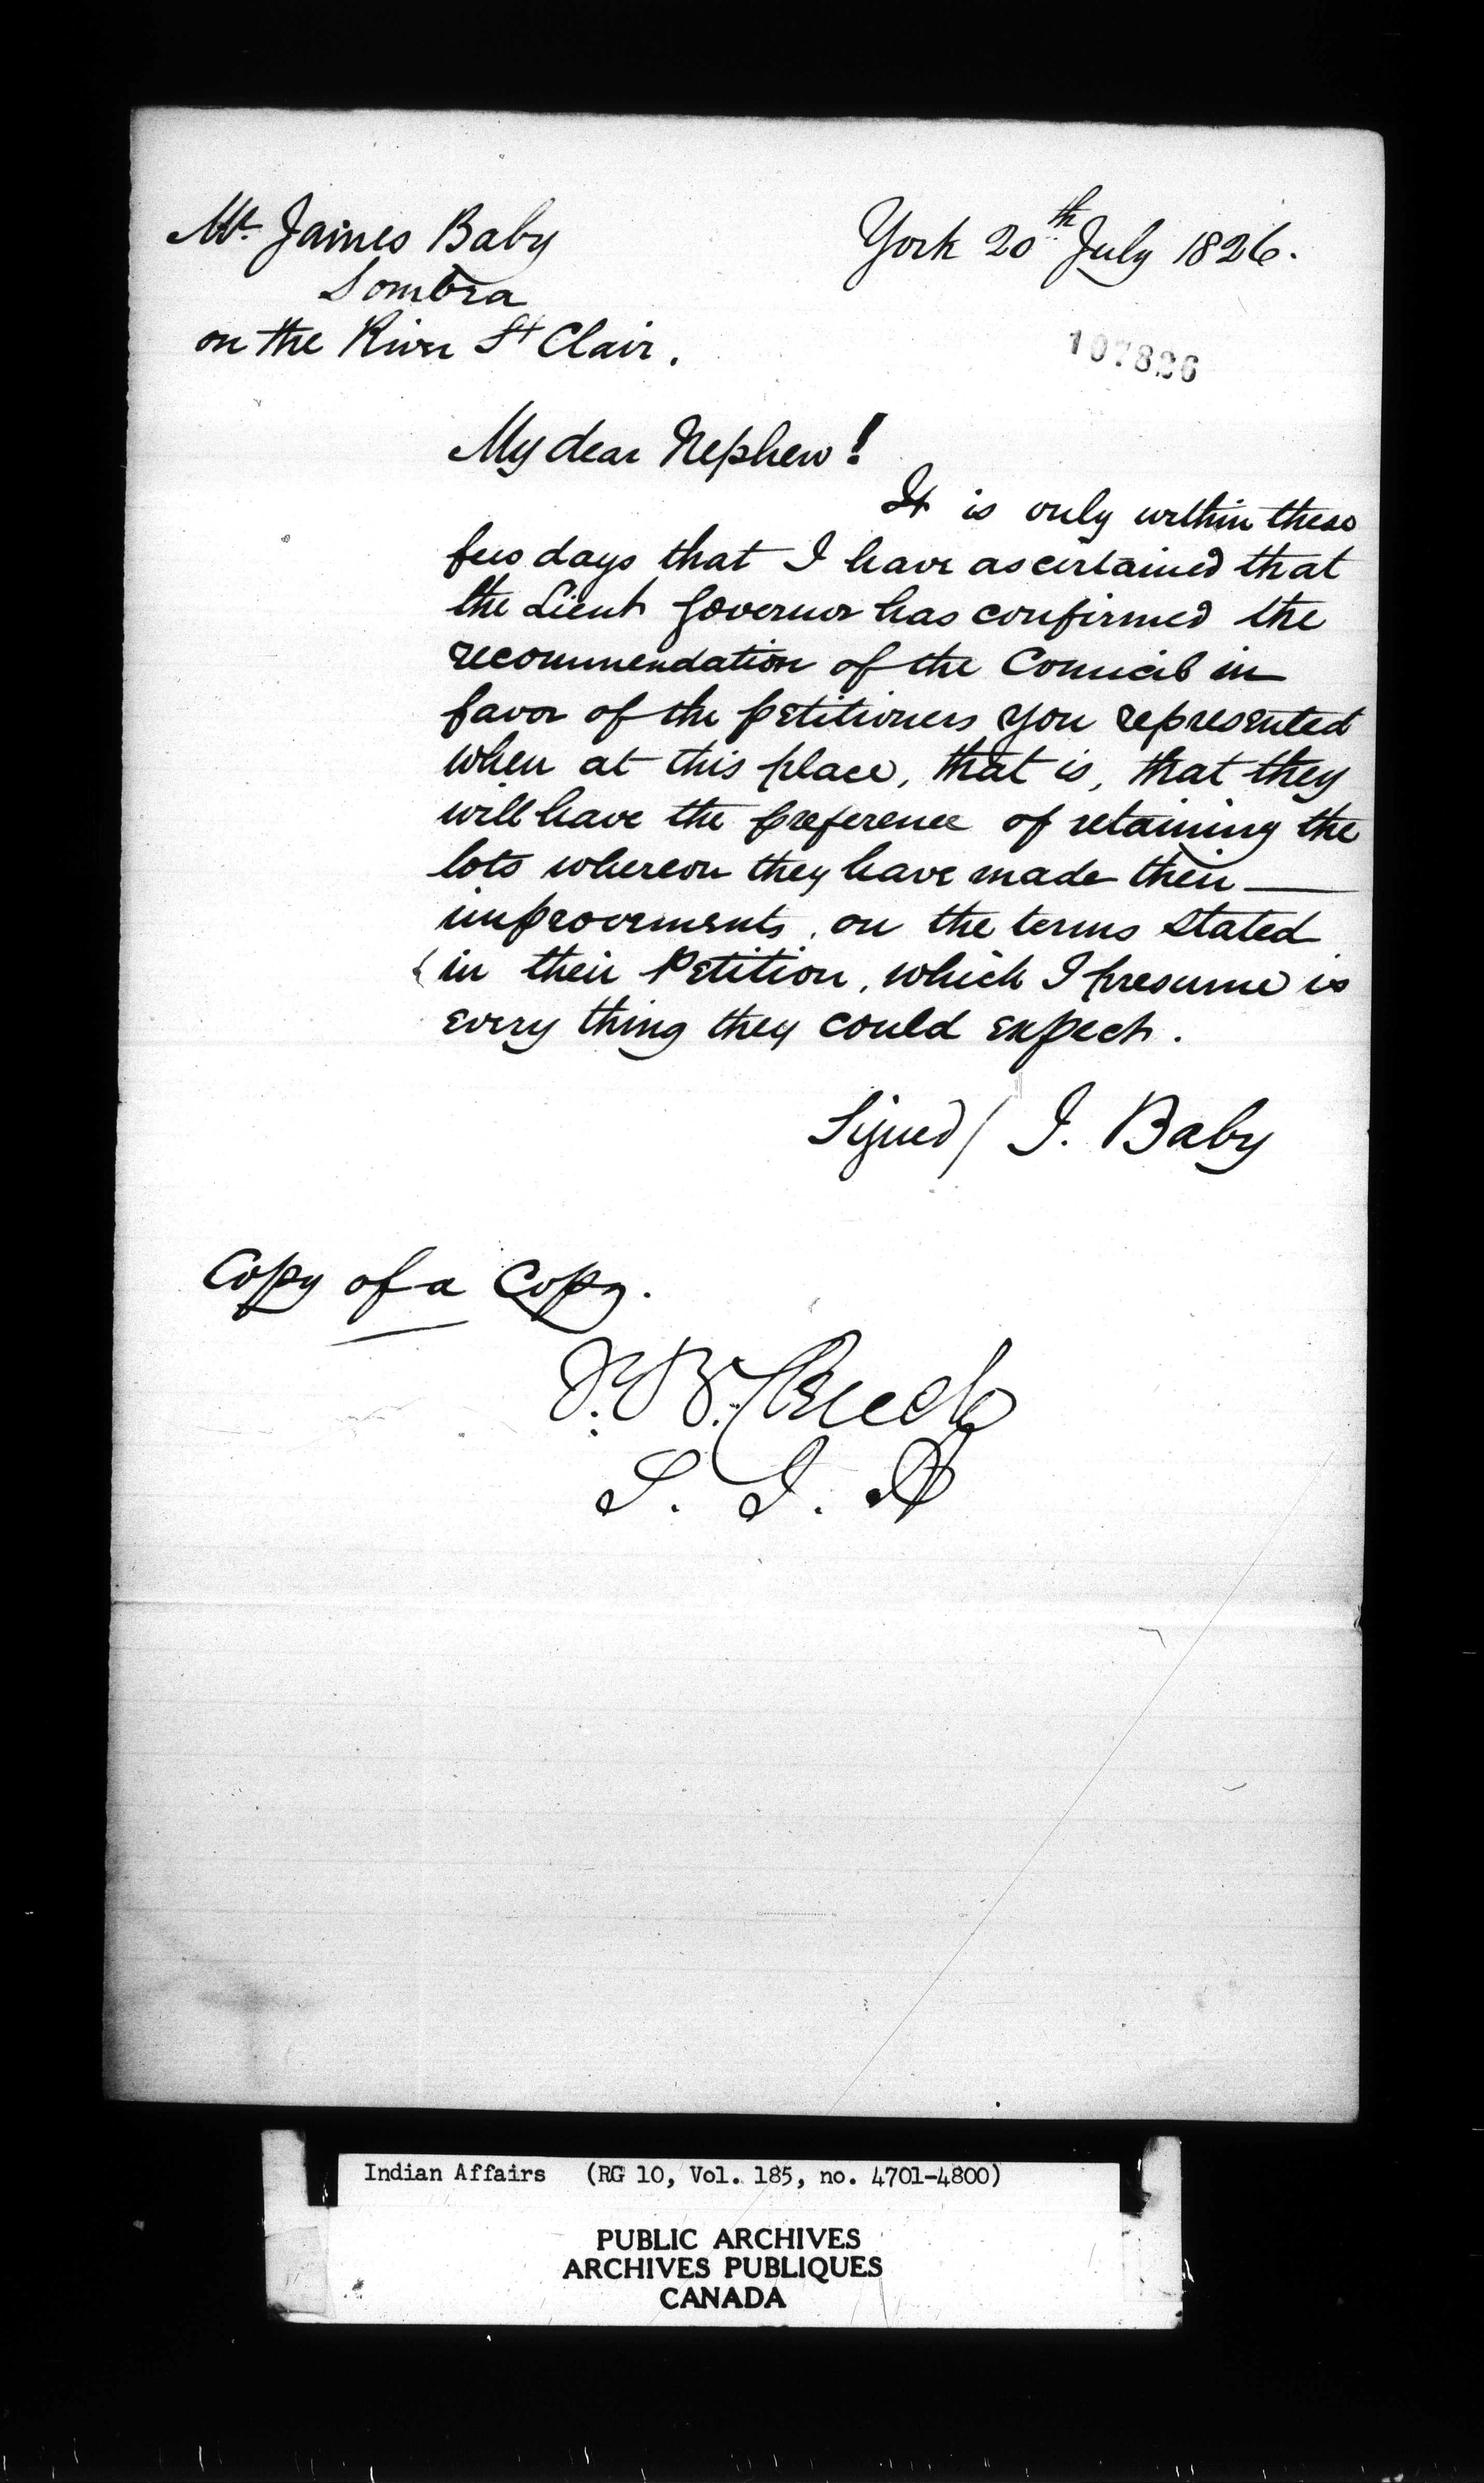 Mr. James Baby
Sombra
on the River St Clair.
York 20th July 1826.
107826
My dear Nephew!
It is only within these
few days that I have ascertained that
the Lieut Governor has confirmed the
recommendation of the Council in
favor of the petitioners you represented
when at this place, that is, that they
will have the preference of retaining the
lots whereon they have made their
improvements, on the terms stated
in their Petition, which I presume is
every thing they could expect.
Signed / J. Baby
Copy of a Copy.
S. I. A
Indian Affairs (RG 10, Vol. 185, no. 4701-4800)
PUBLIC ARCHIVES
ARCHIVES PUBLIQUES
CANADA